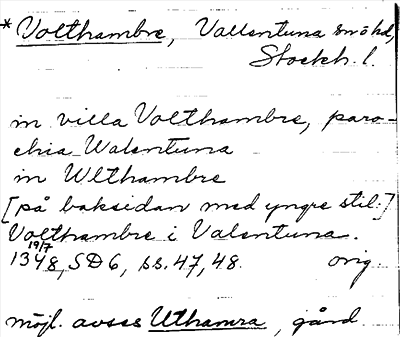 *Volthambre, Vallentuna sn o hd,
Stockh. l.
in villa Volthambre, paro-
chia Walentuna
in Wlthambre
[på baksidan med yngre stil:]
Volthambre i Valentuna.
19/7
1348, SD 6, ss. 47, 48. orig.
möjl. avses Uthamra, gård.